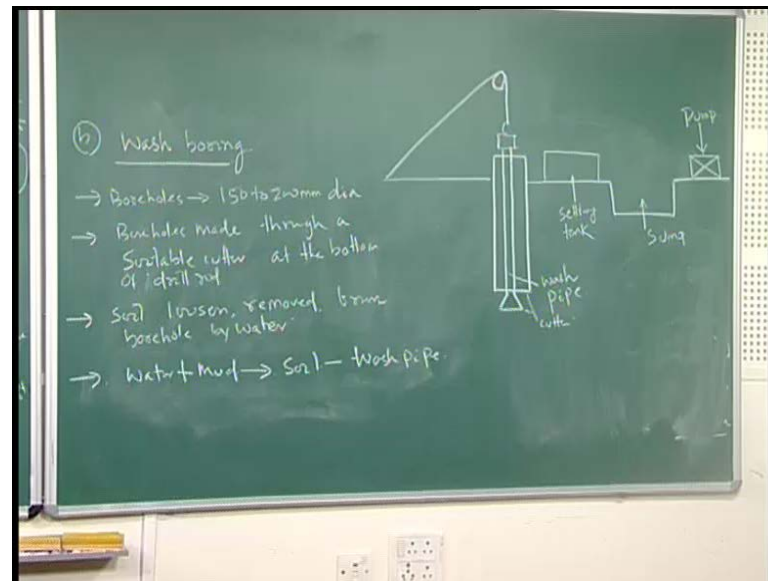 (b) Wash boring.
→ Boreholes → 150 to 200mm dia
→ Boreholes made through a
Suitable cutter at the bottom
of drill rod
→ Soil loosen, removed from
borehole by water.
→ Water + Mud → Soil – Wash pipe.
Pump
Settling
tank
Sump
wash
pipe
cutter